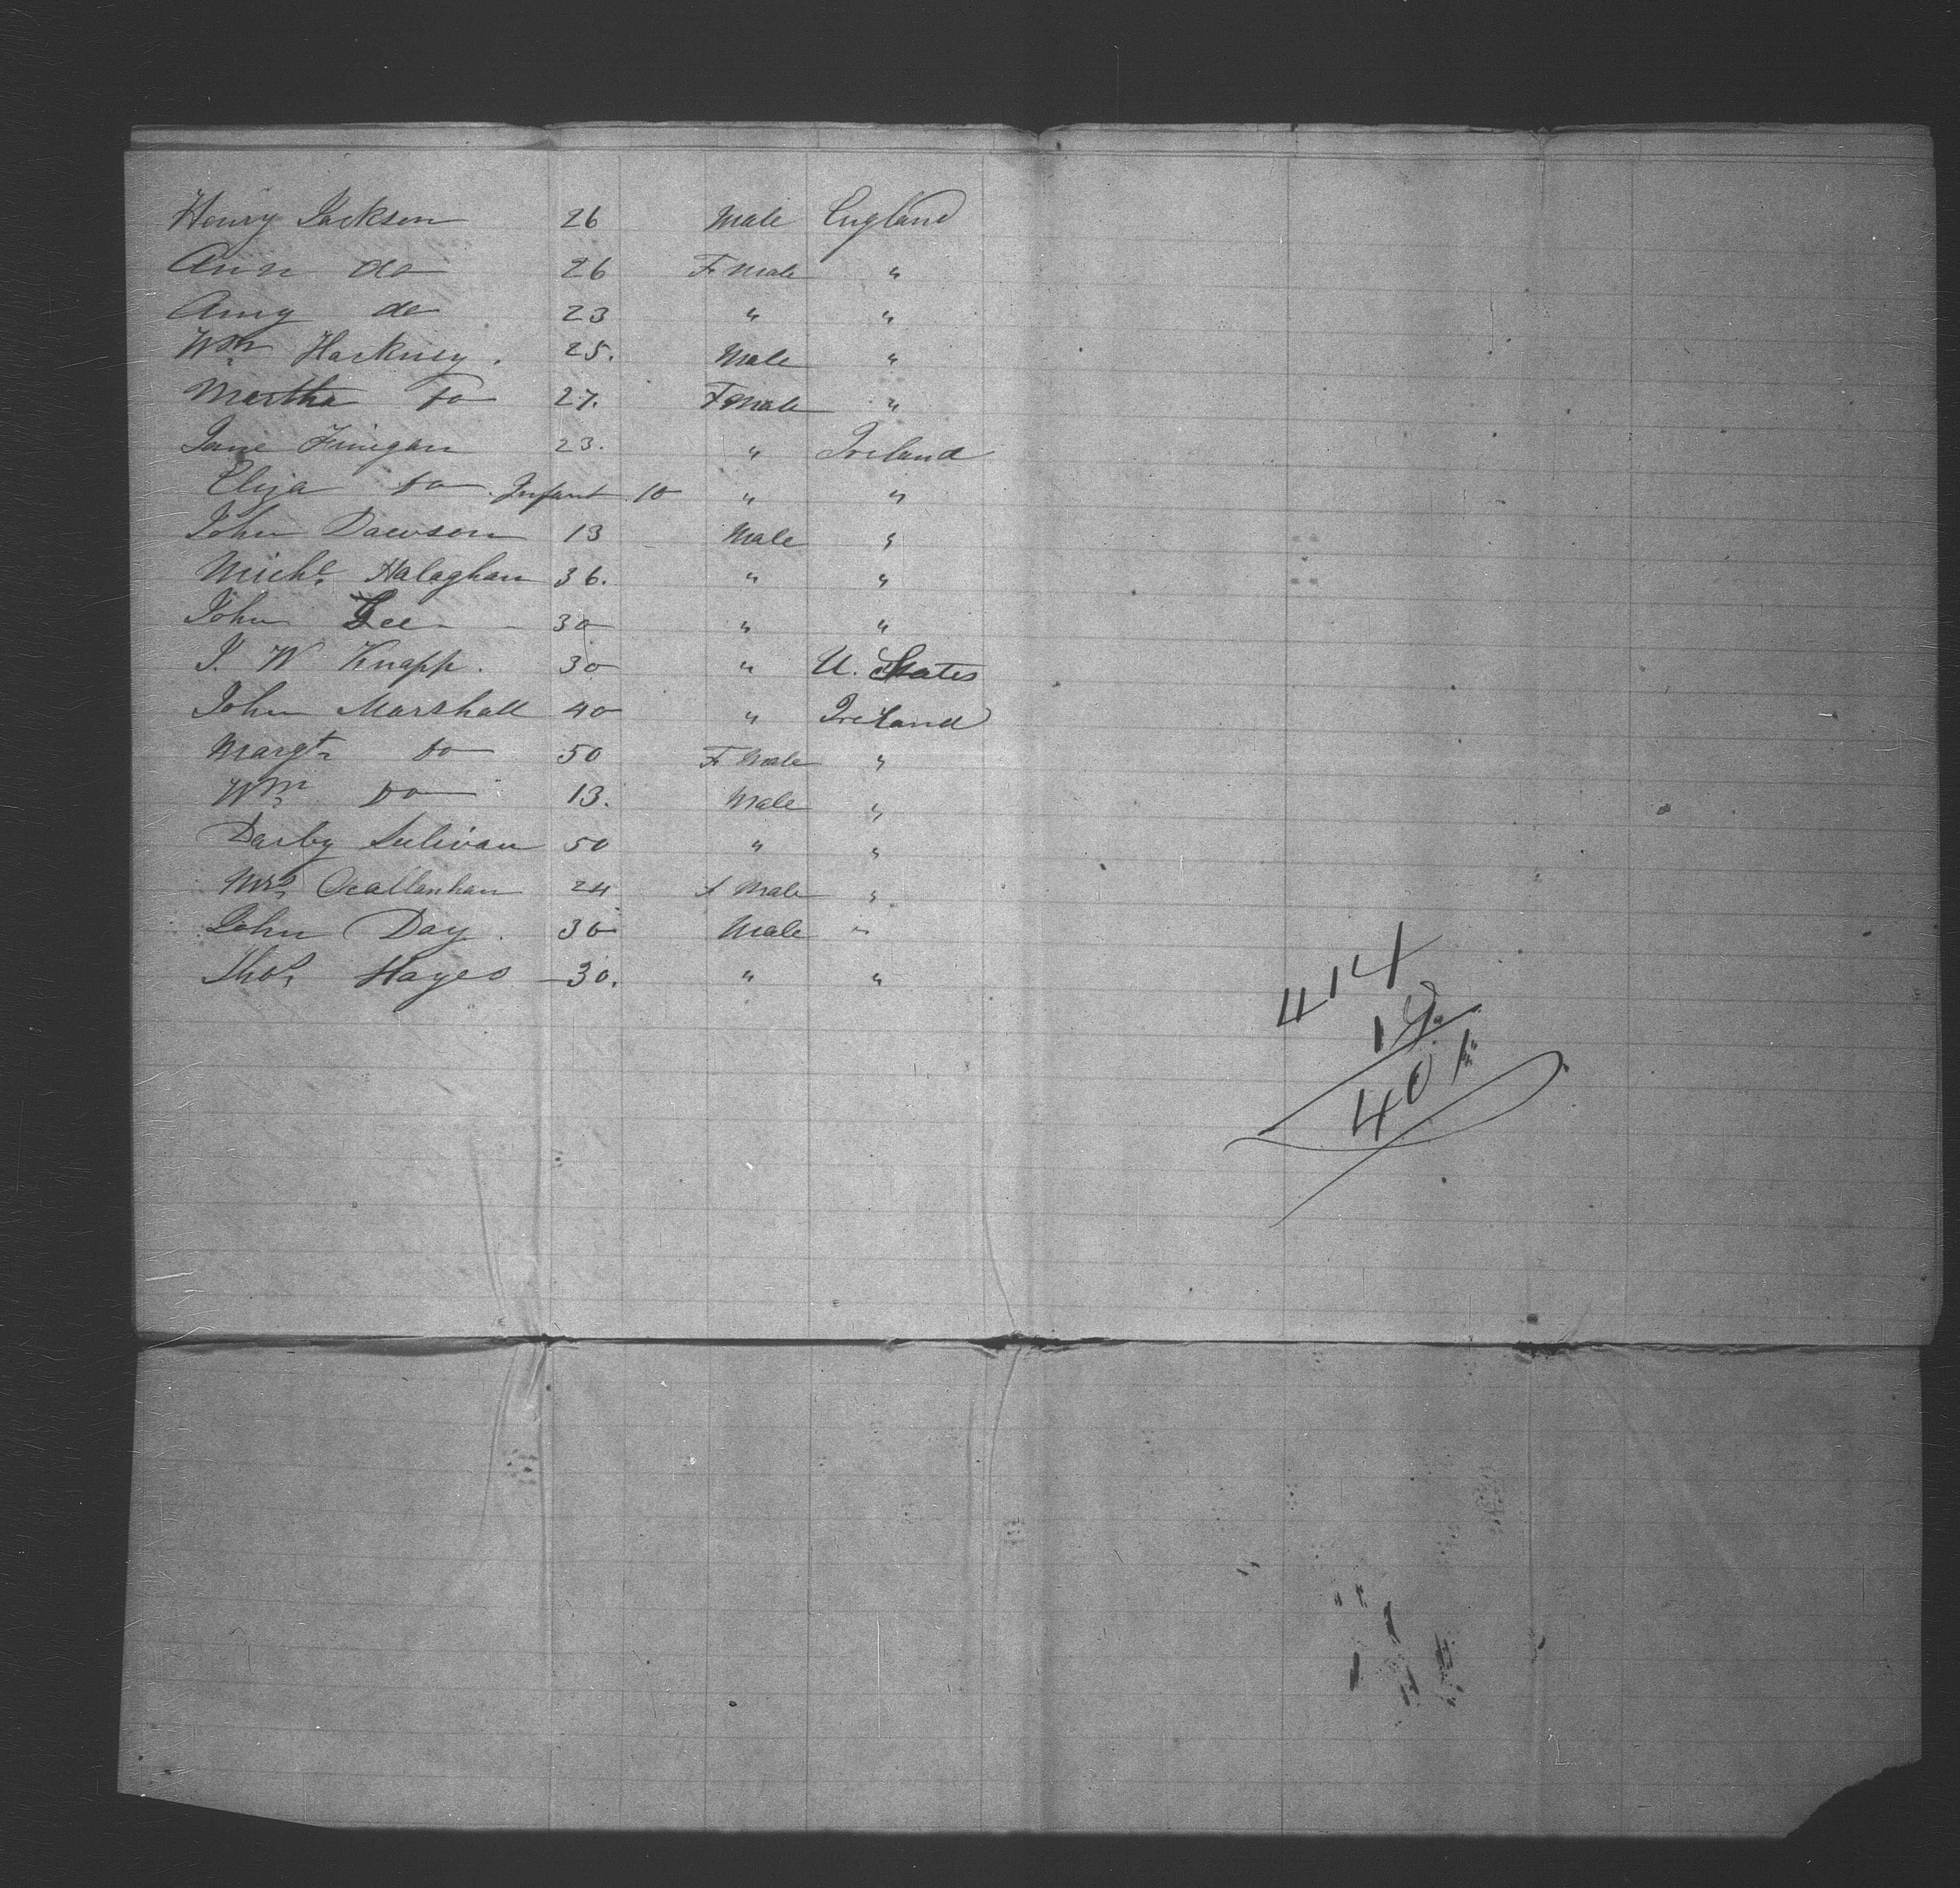 Henry Jackson 26 Male England
Ann do 26 F Male "
Amy do 23 " "
Wm Harkney. 25. Male "
Martha Do 27. F Male "
Jane Finigan 23. " Ireland
Eliza Do Infant 10 " "
John Dawson 13 Male "
Michl Halaghan 36. " "
John Lee 30 " "
J. W Knapp. 30 " U. States
John Marshall 40 " Ireland
Margt Do 50 F Male "
Wm Do 13. Male "
Darby Sulivan 50 " "
Mrs Ocallanhan 24 F Male "
John Day. 30 Male "
Thos Hayes 30. " "
414
401